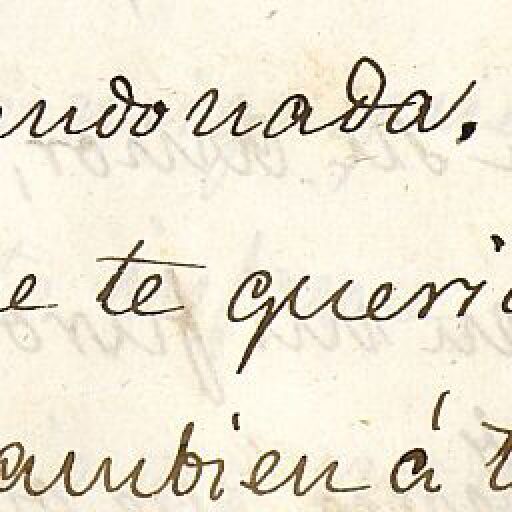 andonada.
e te queri
ambien á t